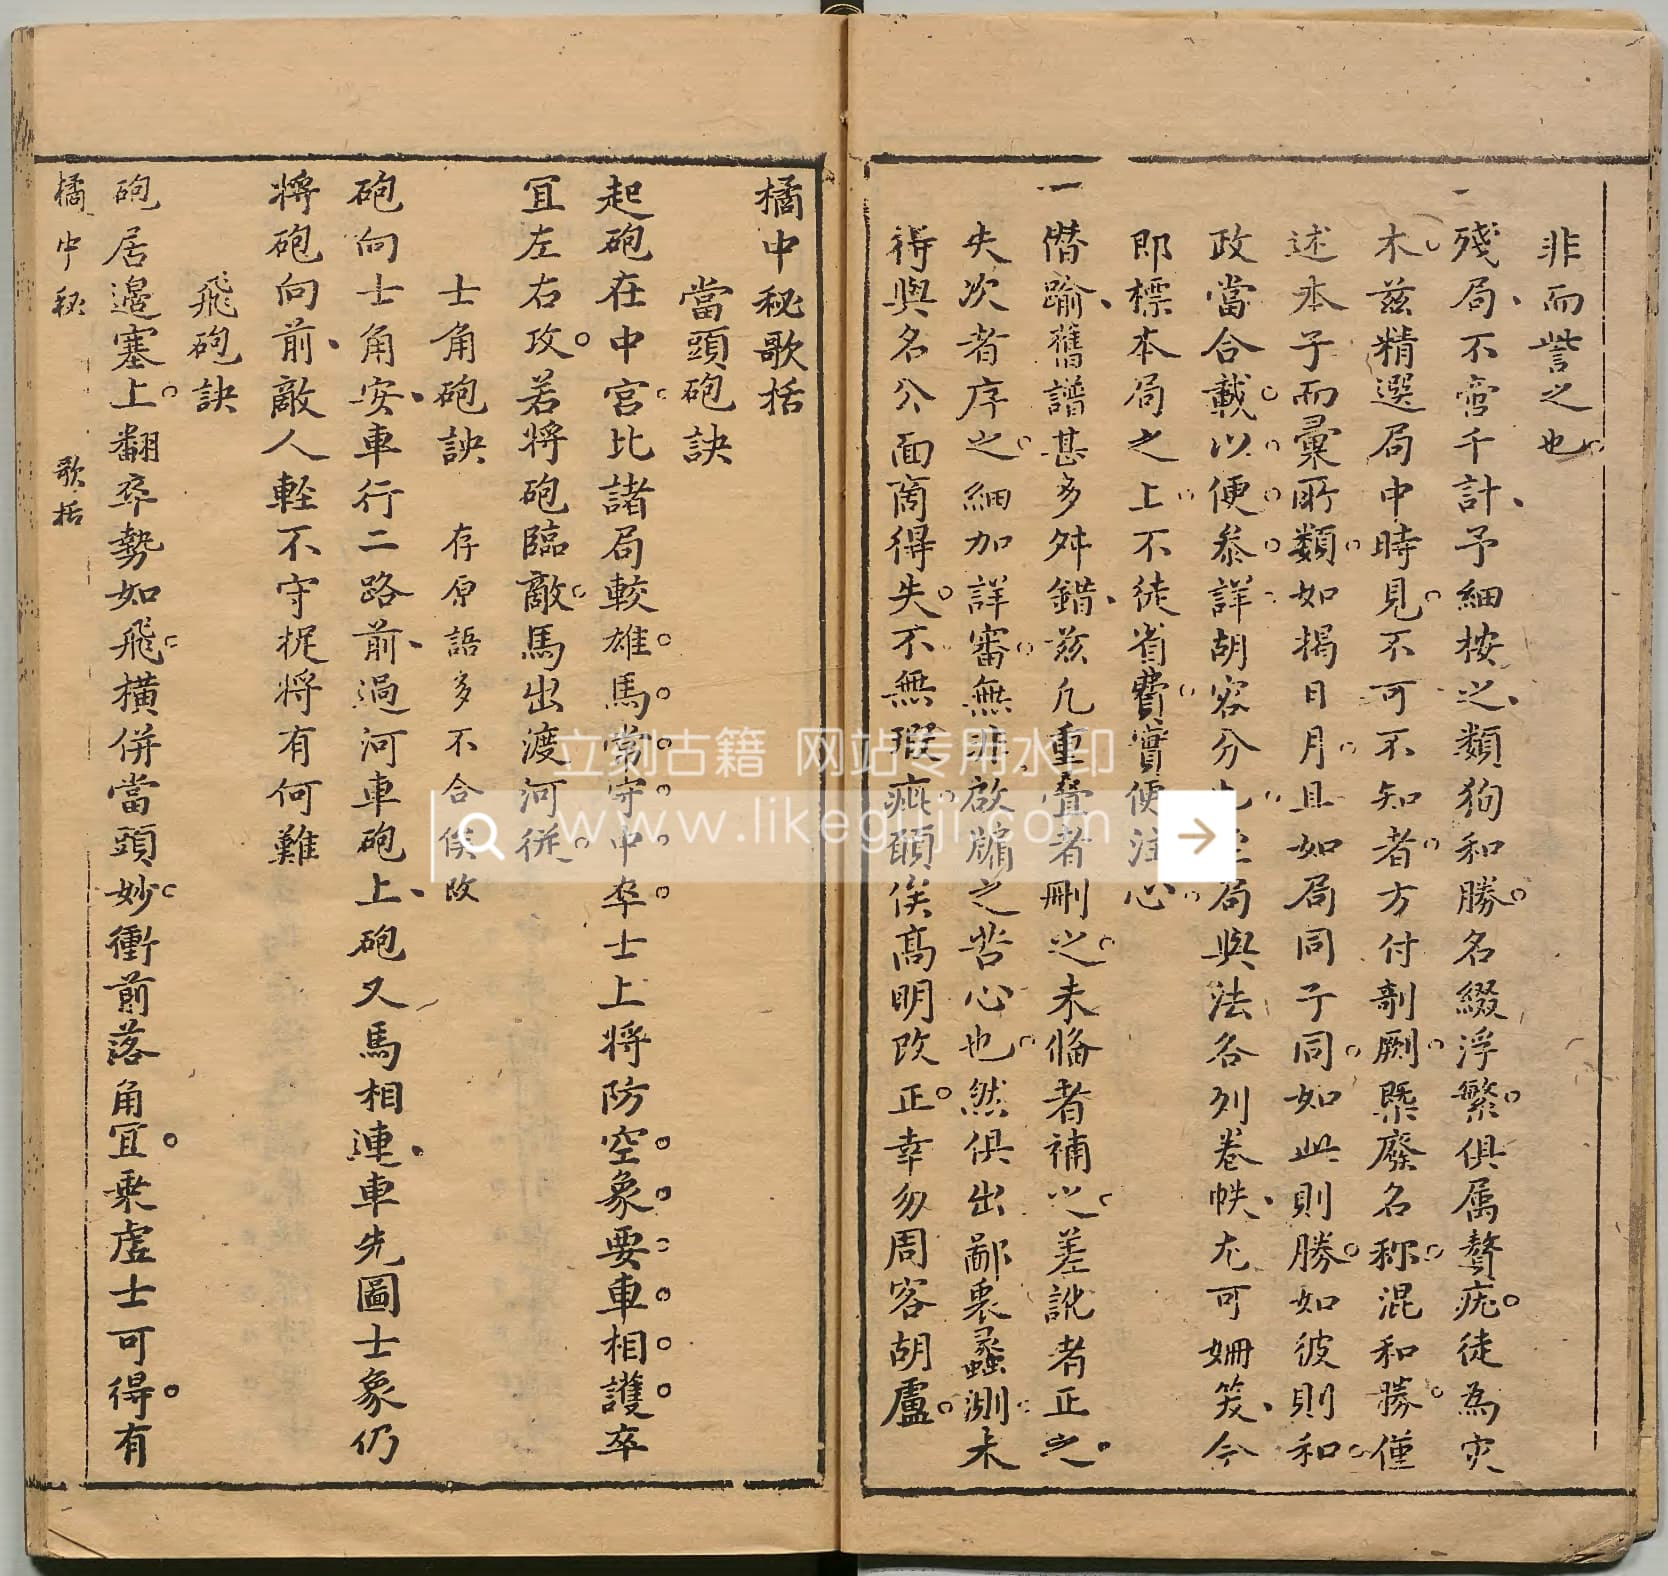 非而訾之也
一殘局不啻千計予細按之類狗和勝名綴浮繁俱属贅疣徒為灾
木兹精選局中時見不可不知者方付剞劂槩廢名称混和勝僅
述本子而彙所類如揭日月且如局同子同如此則勝如彼則和
政當合載以便叅詳胡容分局與法各列卷帙尤可姍笑今
即標本局之上不徒省費實便注心
一僭踰舊譜甚多舛錯兹凡重叠者刪之未俻者補之差訛者正之
失次者序之細加詳審無非啟牖之苦心也然俱出鄙衷蠡測未
得與名公面商得失不無瑕疵願俟髙明改正幸勿周客胡盧
橘中秘歌括
當頭砲訣
起砲在中宮比諸局較雄馬常守中卒士上將防空象要車相護卒
宜左右攻若將砲臨敵馬出渡河従
士角砲訣 存原語多不合俟改
砲向士角安車行二路前過河車砲上砲又馬相連車先圖士象仍
將砲向前敵人輕不守捉將有何難
飛砲訣
砲居邉塞上翻卒勢如飛橫併當頭妙衝前落角宜乘虛士可得有
橘中秘 歌括
立刻古籍 网站专用水印
www.likeguji.com